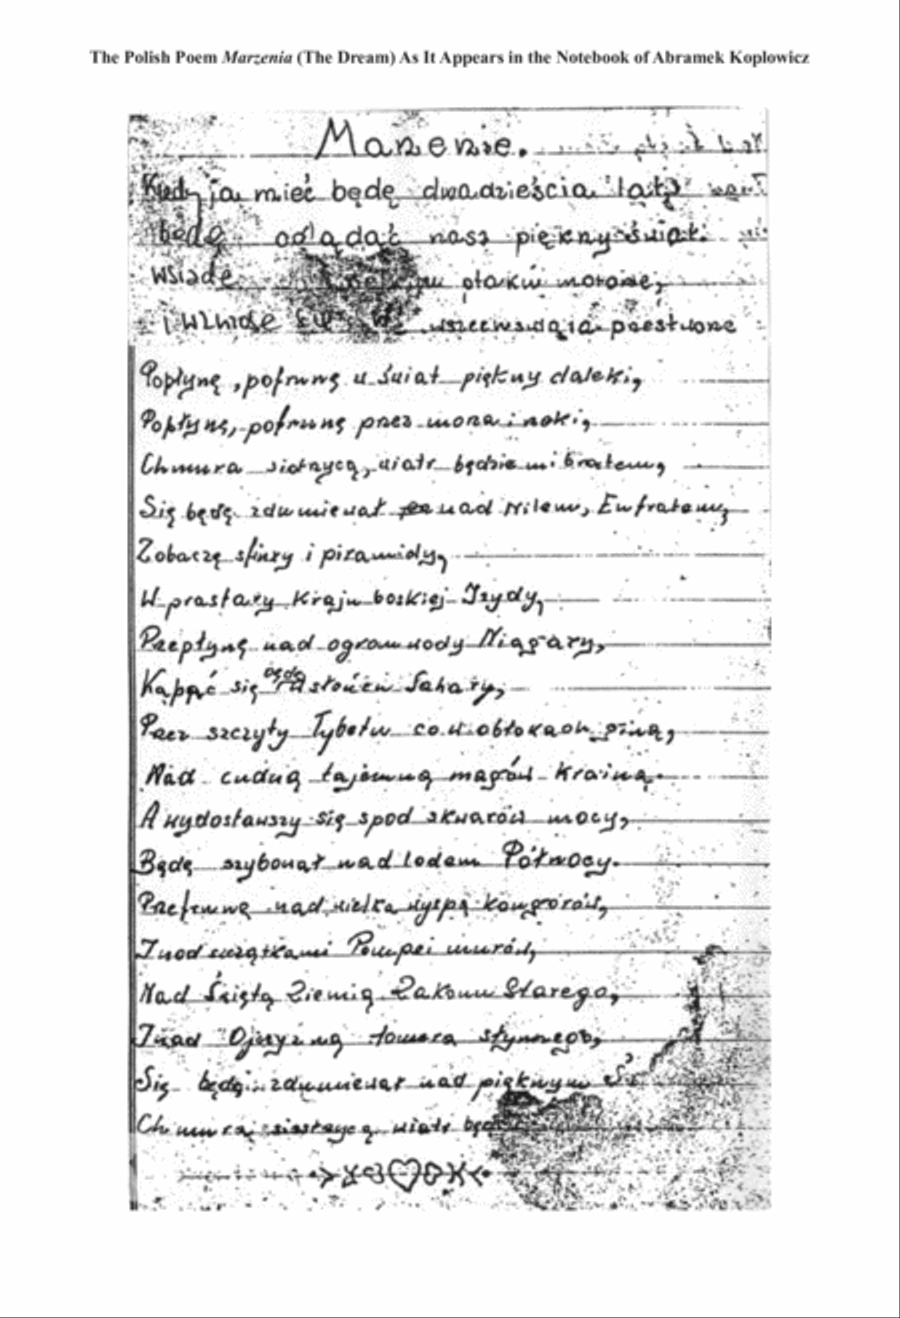 The Polish Poem Marzenia (The Dream) As It Appears in the Notebook of Abramek Koplowicz
Marzenie.
Kiedy ja mieć będę dwadzieścia lat,
będę oglądać nasz piękny świat.
Wsiądę ptaków motorze,
i wzniosę się w wszechświata przestworze
Popłynę, pofrunę w świat piękny daleki,
Popłynę, pofrunę przez morza i rzeki,
Chmura siostrzycą, wiatr będzie mi bratem,
Się będę zdumiewał nad Nilem, Eufratem,
Zobaczę sfinxy i piramidy,
W prastary kraju boskiej Izydy,
Przepłynę nad ogrom wody Niagary,
Kąpać się będę słońcu Sahary,
Przez szczyty Tybetu co w obłokach giną,
Nad cudną tajemną magów krainą.
A wydostawszy się spod skwarów mocy,
Będę szybował nad lodem Północy.
Przefrunę nad wielką wyspą kangórów,
I nad szczątkami Pompei murów,
Nad Świętą Ziemią Zakonu Starego,
I nad Ojczyzną Homera słynnego,
Się będę zdumiewał nad pięknym
Chmura siostrzycą wiatr